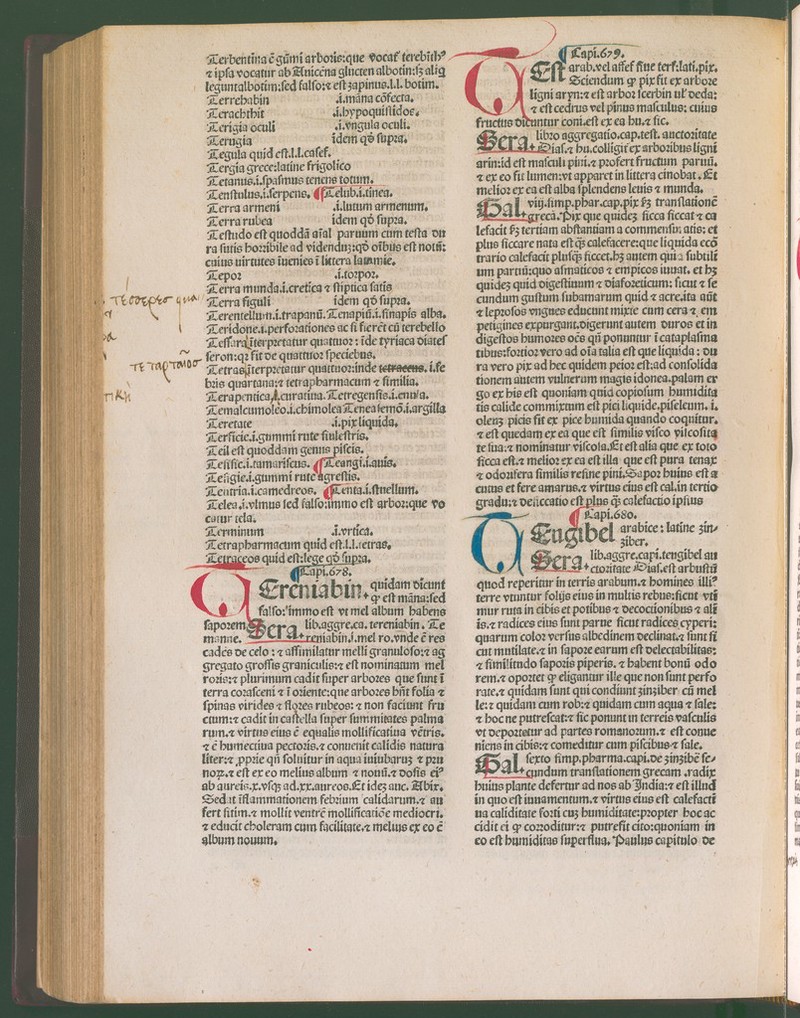 Terbentina ē gūmi arboris:que vocat᷑ terebith⁹
⁊ ipsa vocatur ab Auicēna glucten albotin:sꝫ aliq̄
leguntalbotim:sed falso:⁊ est sapinus.l.l. botim.
Terrehabin .i.māna cōfecta.
Terachthit .i.hypoquistidos.
Terigia oculi .i.vngula oculi.
Terugia idem qd̄ supra.
Tegula quid est.l.l.casef.
Tergia grece:latine frigolico
Tetanus.i.spasmus tenens totum.
Tenstulus.i.serpens. ¶Telub.i.tinea.
Terra armeni .i.lutum armenum.
Terra rubea idem qd̄ supra.
Testudo est quoddā aīal paruum cum testa du
ra satis horribile ad videnduꝫ:qd̄ oībus est notū:
cuius virtutes īuenies ī littera
Tepor .i.torpor.
Terra munda.i.cretica ⁊ stiptica satis
Terra figuli idem qd̄ supra.
Terentellum.i.trapanū. Tenapiū.i.sinapis alba.
Teridone.i.perforationes ac si fierēt cū terebello
Tessara īterpretatur quattuor : īde tyriaca diates
seron:qꝛ fit de quattuor speciebus.
Tetras īterpretatur quattuor:inde tetraceus.i.fe
bris quartana:⁊ tetrapharmacum ⁊ similia.
Terapentica.i.curatiua. Tetregensis.i.enula.
Temalcumoleo.i.chimolea Teneasemō.i.argilla
Teretate .i.pix liquida.
Tersicie.i.gummi rute siluestris.
Teil est quoddam genus piscis.
Tesific.i.tamariscus. ¶Teangi.i.auis.
Tesigie.i.gummi rute agrestis.
Teutria.i.camedreos. ¶Tenta.i.stuellum.
Telea.i.vlmus sed falso:immo est arbor:que vo
catur tela.
Terminum .i.vrtica.
Tetrapharmacum quid est.l.l.tetras.
Tetraceos quid est:lege qd̄ supra.
¶Capi.678.
TEreniabin. quidam dicunt
ꝙ est māna:sed
falso:immo est vt mel album habens
saporem Sera. lib.aggre.ca. tereniabin. Te
manne. reniabin.i.mel ro.vnde ē res
cadēs de celo : ⁊ assimilatur melli granuloso:⁊ ag
gregato grossis graniculis:⁊ est nominatum mel
roris:⁊ plurimum cadit super arbores que sunt ī
terra corasceni ⁊ ī oriente:que arbores hn̄t folia ⁊
spinas virides ⁊ flores rubeos: ⁊ non faciunt fru
ctum:⁊ cadit in castella super summitates palma
rum.⁊ virtus eius ē equalis mollificatiua vētris.
⁊ ē humectiua pectoris.⁊ conuenit calidis natura
liter:⁊ ꝓprie qn̄ soluitur in aqua iuiubaruꝫ ⁊ pru
noꝝ.⁊ est ex eo melius album ⁊ nouū.⁊ dosis ei⁹
ab aureis.x.vsqꝫ ad.xx.aureos.Et ideꝫ auc. Abix.
Sedat īflammationem febrium calidarum.⁊ au
fert sitim.⁊ mollit ventrē mollificatiōe mediocri.
⁊ educit choleram cum facilitate.⁊ melius ex eo ē
album nouum.
τέσσερεσ
τεταρταῖοσ
¶Capi.679.
TEst arab.vel assef siue terf:lati.pix.
Sciendum ꝙ pix fit ex arbore
ligni aryn:⁊ est arbor scerbin vl᷑ deda:
⁊ est cedrus vel pinus masculus: cuius
fructus dicuntur coni.est ex ea hu.⁊ sic.
Sera. libro aggregatio.cap.test. auctoritate
Dias.⁊ hu.colligit᷑ ex arboribus ligni
arin:id est masculi pini.⁊ profert fructum paruū.
⁊ ex eo fit lumen:vt apparet in littera cinobat. Et
melior ex ea est alba splendens leuis ⁊ munda.
Gal. viij.simp.phar.cap.pix ẜꝫ translationē
grecā. Pix que quideꝫ sicca siccat ⁊ ca
lefacit ẜꝫ tertiam abstantiam a commensuratis: et
plus siccare nata est qꝫ calefacere:que liquida ecō
trario calefacit plusqꝫ siccet.hꝫ autem qui a subtili
um partiū:quo asmaticos ⁊ empicos iuuat. et hꝫ
quideꝫ quid digestiuum ⁊ diaforeticum: sicut ⁊ se
cundum gustum subamarum quid ⁊ acre.ita aūt
⁊ leprosos vngues educunt mixte cum cera ⁊ em
petigines expurgant.digerunt autem duros et in
digestos humores oēs qn̄ ponuntur ī cataplasma
tibus:fortior vero ad oīa talia est que liquida : du
ra vero pix ad hec quidem peior est:ad consolida
tionem autem vulnerum magis idonea.palam er
go ex his est quoniam quid copiosum humidita
tis calide commixtum est pici liquide.piselcum. i.
oleuꝫ picis fit ex pice humida quando coquitur.
⁊ est quedam ex ea que est similis visco viscosita
te sua:⁊ nominatur viscosa.Et est alia que ex toto
sicca est.⁊ melior ex ea est illa que est pura tenax
⁊ odorifera similis resine pini.Sapor huius est a
cutus et fere amarus.⁊ virtus eius est cal.in tertio
gradu:⁊ desiccatio est plus qꝫ calefactio ipsius
¶Capi.680.
TEngibel arabice : latine zin-
ziber.
Sera. lib.aggre.capi.tengibel au
ctoritate Dias.est arbustū
quod reperitur in terris arabum.⁊ homines illi⁹
terre vtuntur folijs eius in multis rebus:sicut vtū
mur ruta in cibis et potibus ⁊ decoctionibus ⁊ alī
is.⁊ radices eius sunt parue sicut radices cyperi:
quarum color versus albedinem declinat.⁊ sunt si
cut mutilate.⁊ in sapore earum est delectabilitas:
⁊ similitudo saporis piperis. ⁊ habent bonū odo
rem.⁊ oportet ꝙ eligantur ille que non sunt perfo
rate.⁊ quidam sunt qui condiunt zinziber cū mel
le: ⁊ quidam cum rob:⁊ quidam cum aqua ⁊ sale:
⁊ hoc ne putrescat:⁊ sic ponunt in terreis vasculis
vt deportetur ad partes romanorum.⁊ est conue
niens in cibis:⁊ comeditur cum piscibus ⁊ sale.
Gal. sexto simp.pharma.capi.de zinzibē se-
cundum translationem grecam .radix
huius plante defertur ad nos ab India:⁊ est illud
in quo est iuuamentum.⁊ virtus eius est calefacti
ua caliditate forti cuꝫ humiditate:propter hoc ac
cidit ei ꝙ corroditur:⁊ putrefit cito:quoniam in
eo est humiditas superflua. Paulus capitulo de